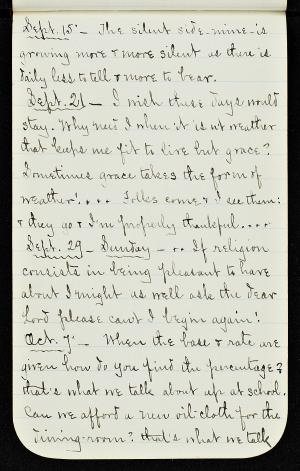 Sept. 15 - The silent side-mine-is
growing more & more silent as there is
daily less to tell & more to bear.
Sept. 21 - I wish these days would
stay. Why need I when it is not weather
that keeps me fit to live but grace?
Sometimes grace takes the form of
weather!.... Folks come & I see them:
& they go & I'm properly thankful....
Sept. 29 - Sunday - .. If religion
consists in being pleasant to have
about I might as well ask the dear
Lord please can't I begin again!
Oct. 7 - When the base & rate are
given how do you find the percentage?
that's what we talk about up at school.
Can we afford a new oil-cloth for the
dining-room? that's what we talk